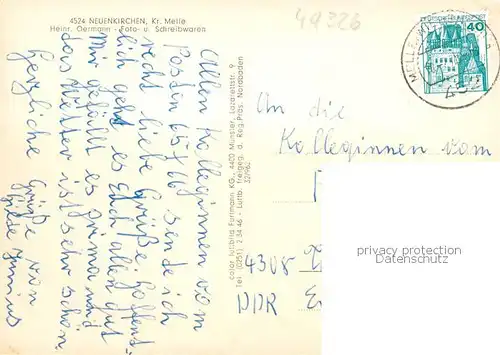 4524 NEUENKIRCHEN, Kr. Melle
Heinr. Oermann - Foto- u. Schreibwaren
49326
Allen Kolleginnen vom
sende ich
recht liebe Grüße. Hoffent-
lich geht es Euch allen gut
Mir gefällt es prima und
das Wetter ist sehr schön.
Herzliche Grüße von
color luftbild Fuhrmann KG., 4400 Münster, Lazarettstr. 9
Tel. (0251) 2 34 46 - Luftb. freigeg. d. Reg.Präs. Nordbaden
MELLE
40
An die
Kolleginnen vom
4305
DDR
privacy protection
Datenschutz